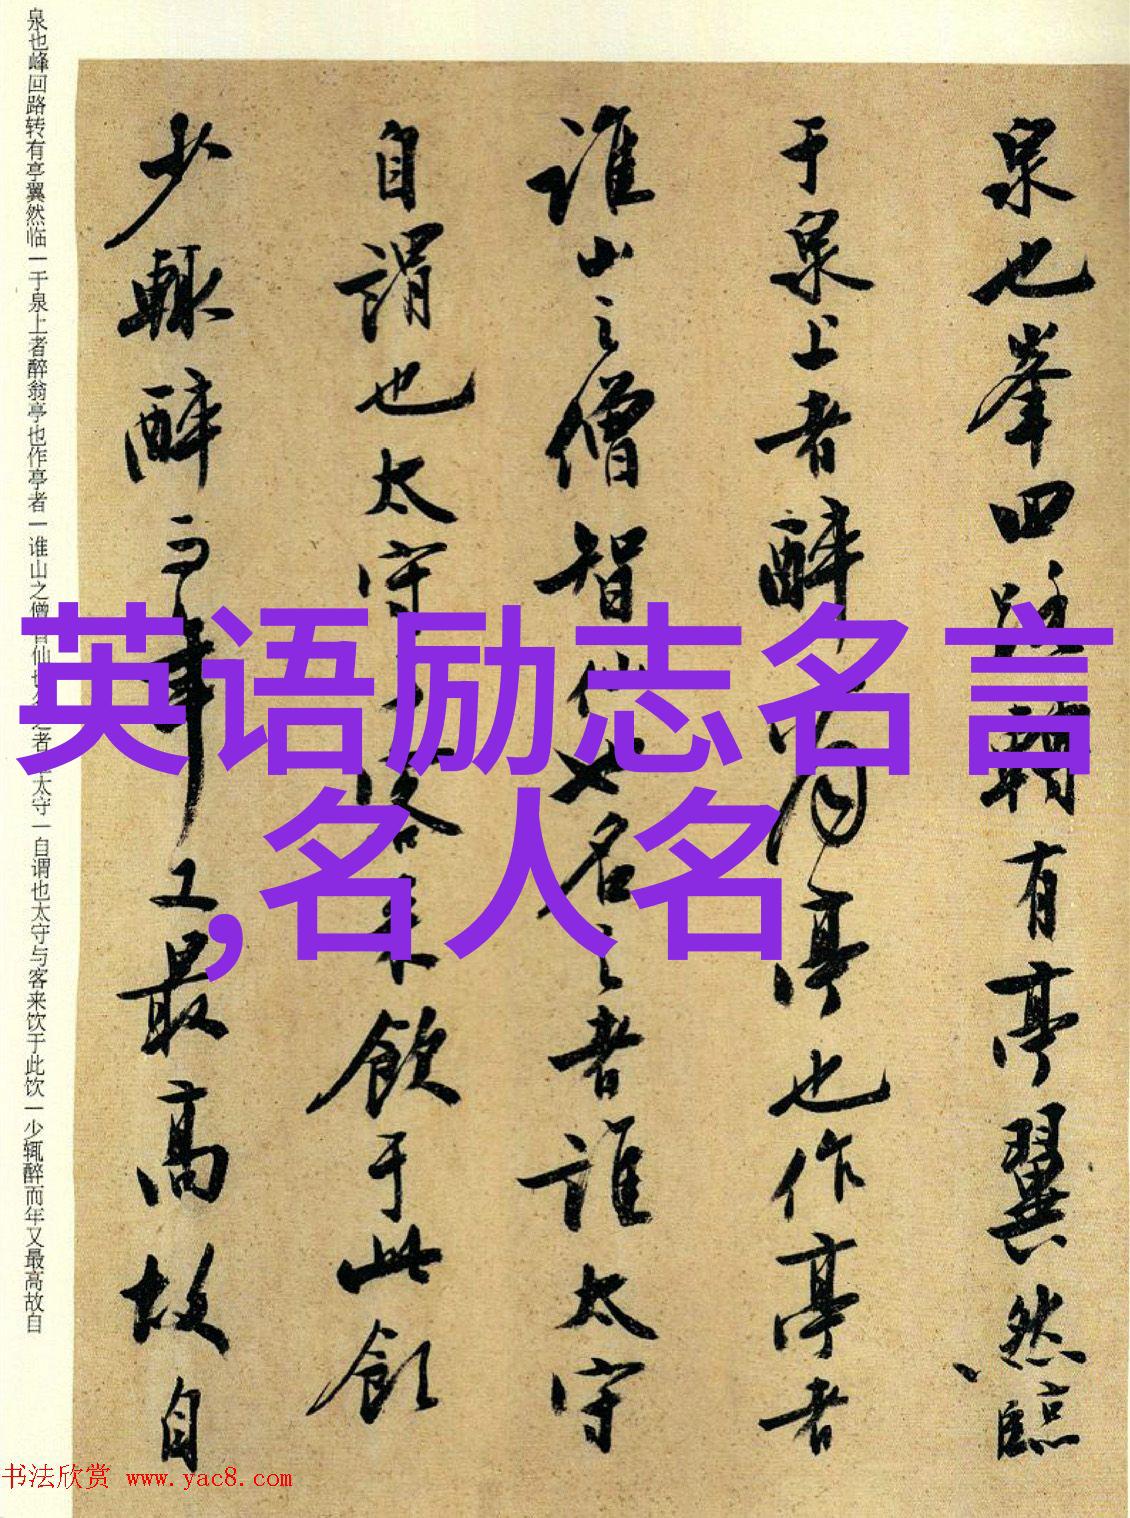 泉也峰回路转有亭翼然临一于泉上者醉翁亭也作亭者一谁山之僧智仙也名之者谁太守一自谓也太守与客来饮于此饮一少辄醉而年又最高故自
泉也峯回路轉有亭翼然臨
于泉上者醉翁亭也作亭者
誰山之僧智仙也名之者誰太守
自謂也太守与客来飲于此飲
少輒醉而年又最高故自
英语励志名言
,名人名
书法欣赏 www.yac8.com